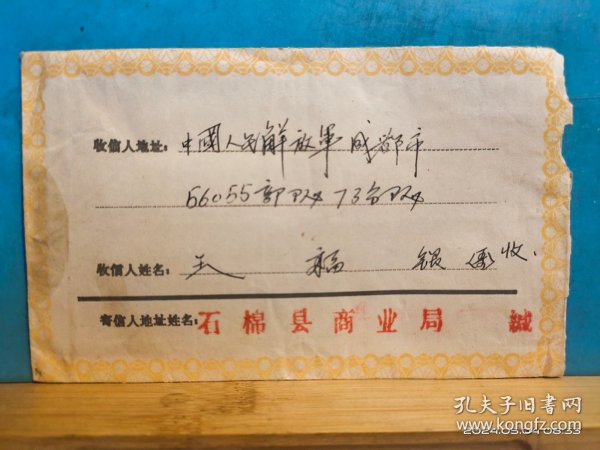 收信人地址: 中國人民解放軍成都市
56055部队73分队
收信人姓名: 王福銀 收.
寄信人地址姓名: 石棉县商业局 缄
孔夫子旧书网
2024.03.04 08:33